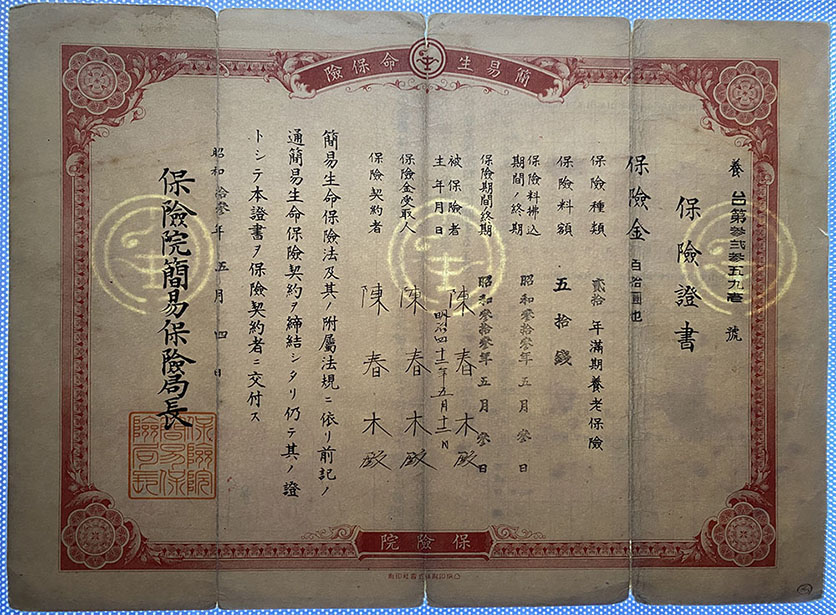 簡易生命保險
養 台第參弐參五九壱 號
保險證書
保險金 百拾圓也
保險種類 貳拾年滿期養老保險
保險料額 五拾錢
保險料拂込期間ノ終期 昭和參拾參年五月參日
保險期間ノ終期 昭和參拾參年五月參日
被保險者 陳春木殿
生年月日 明治四十二年五月十二日
保險金受取人 陳春木殿
保險契約者 陳春木殿
簡易生命保險法及其ノ附屬法規ニ依リ前記ノ
通簡易生命保險契約ヲ締結シタリ仍テ其ノ證
トシテ本證書ヲ保險契約者ニ交付ス
昭和拾參年五月四日
保險院簡易保險局長
保險院
簡易保
險局長
保險院